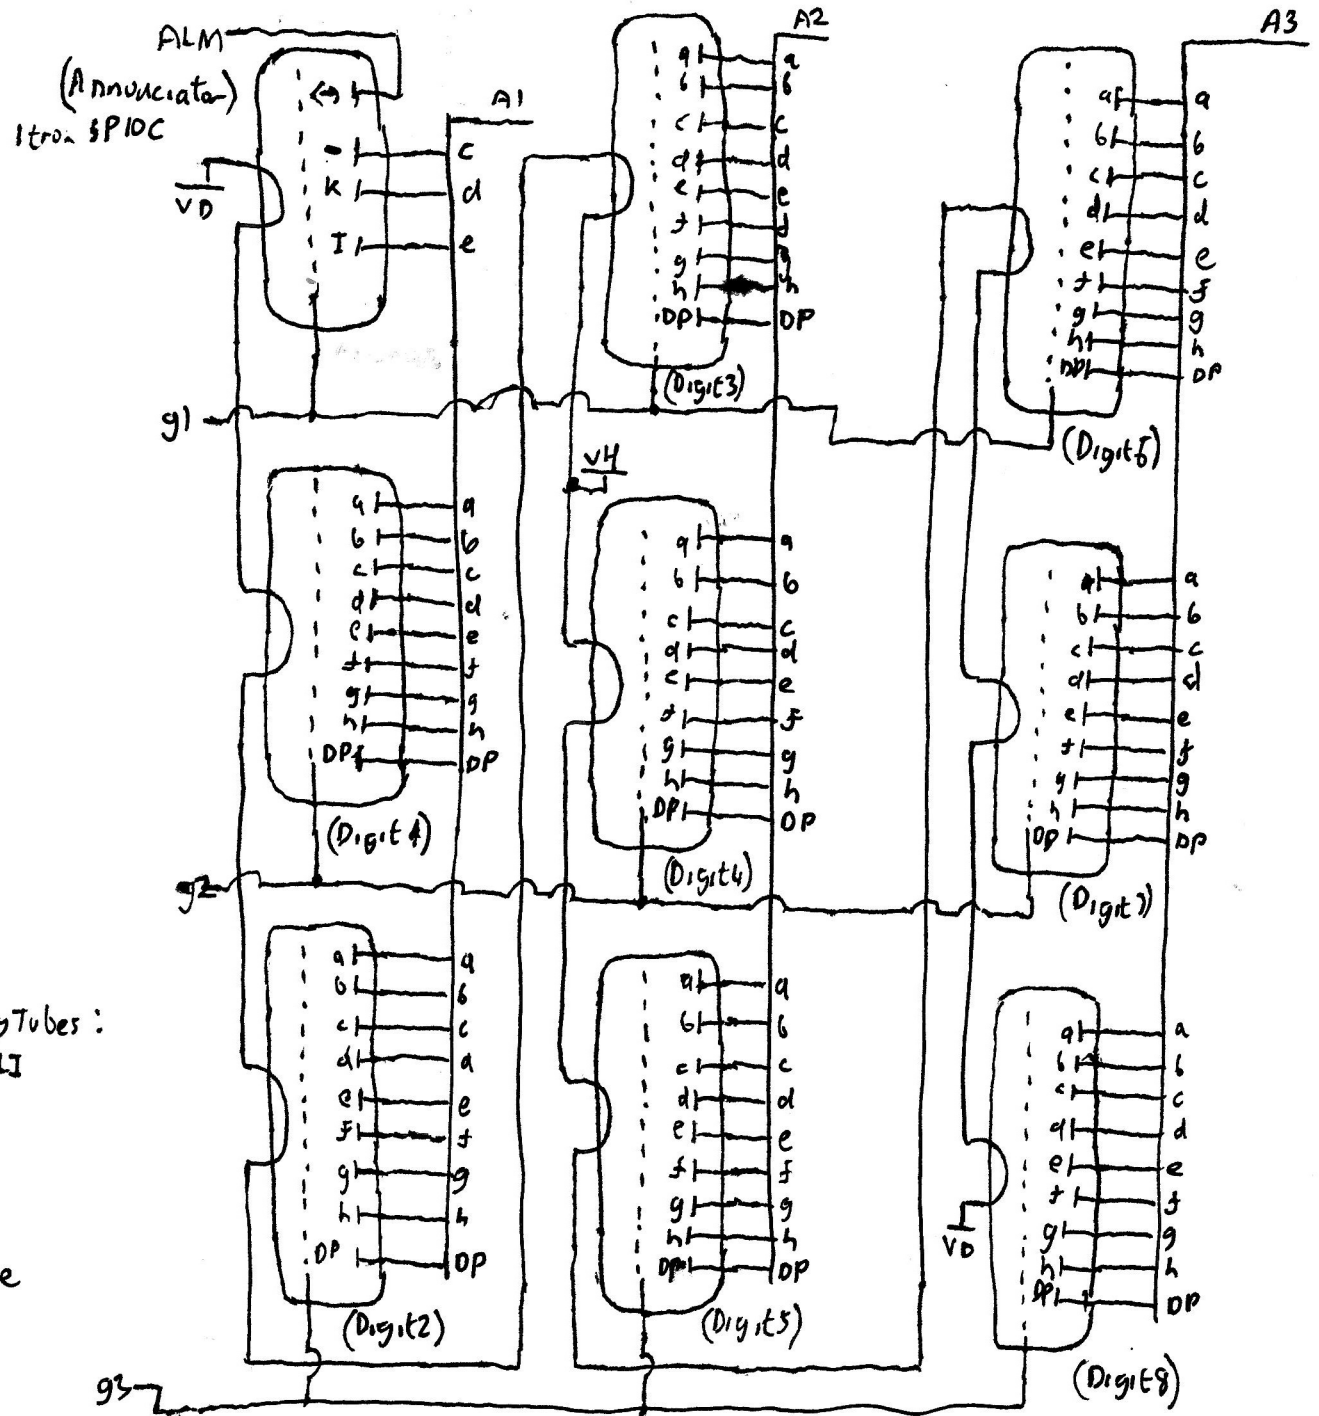 ALM
(Annunciator)
Itron SP10C
VD
<->
-
K
I
A1
c
d
e
A2
a
b
c
d
e
f
g
h
DP
a
b
c
d
e
f
g
h
DP
(Digit3)
A3
a
b
c
d
e
f
g
h
DP
a
b
c
d
e
f
g
h
DP
(Digit6)
g1
VH
a
b
c
d
e
f
g
h
DP
a
b
c
d
e
f
g
h
DP
(Digit1)
a
b
c
d
e
f
g
h
DP
a
b
c
d
e
f
g
h
DP
(Digit4)
a
b
c
d
e
f
g
h
DP
a
b
c
d
e
f
g
h
DP
(Digit7)
g2
yTubes:
LI
e
a
b
c
d
e
f
g
h
DP
a
b
c
d
e
f
g
h
DP
(Digit2)
a
b
c
d
e
f
g
h
DP
a
b
c
d
e
f
g
h
DP
(Digit5)
a
b
c
d
e
f
g
h
DP
a
b
c
d
e
f
g
h
DP
VD
(Digit8)
g3